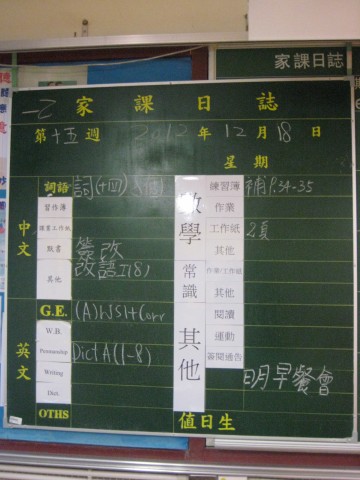 家課日誌
一乙 家課日誌
第十五週 2012年12月18日
星期
中文
詞語 詞(十四)
習作簿
默書
簽改
其他 改語工(8)
英文
G.E. (A)WS1+Corr
W.B.
Penmanship Dict A(1-8)
Writing
Dict.
OTHS
數學
練習簿 補P.34-35
作業
工作紙 2頁
其他
常識
作業/工作紙
其他
其他
閱讀
運動
簽閱通告
明早餐會
值日生